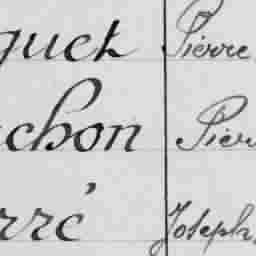 quet Pierre
chon Pier
rré Joseph,